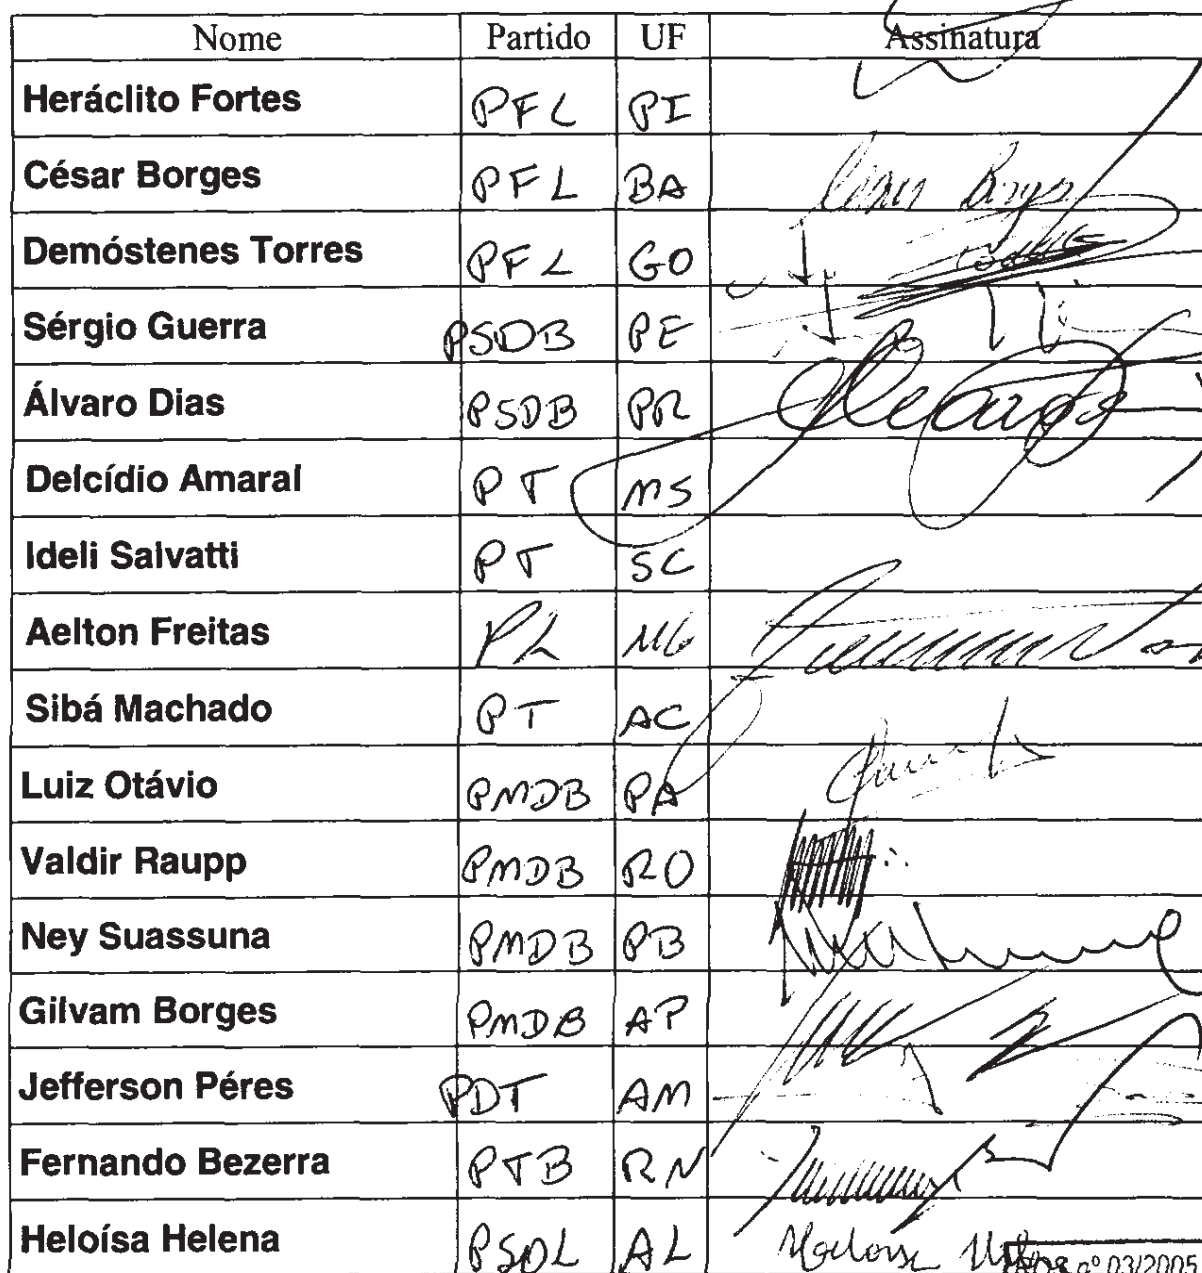 Nome Partido UF Assinatura
Heráclito Fortes PFL PI
César Borges PFL BA
Demóstenes Torres PFL GO
Sérgio Guerra PSDB PE
Álvaro Dias PSDB PR
Delcídio Amaral PT MS
Ideli Salvatti PT SC
Aelton Freitas PL MG
Sibá Machado PT AC
Luiz Otávio PMDB PA
Valdir Raupp PMDB RO
Ney Suassuna PMDB PB
Gilvam Borges PMDB AP
Jefferson Péres PDT AM
Fernando Bezerra PTB RN
Heloísa Helena PSOL AL Heloísa
nº 03/2005